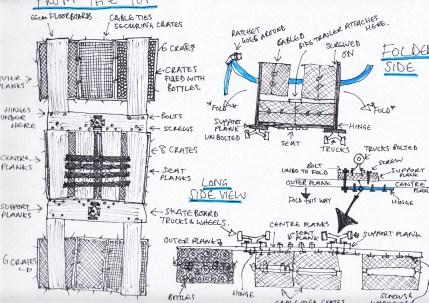 FROM THE TOP
6cm FLOORBOARDS
CABLE TIES
SECURING CRATES
OUTER
PLANKS
6 CRATES
CRATES
FILLED WITH
BOTTLES.
HINGES
UNDER
HERE
BOLTS
SCREWS
CENTRE
PLANKS
8 CRATES
SEAT
PLANKS
SUPPORT
PLANKS
SKATEBOARD
TRUCKS & WHEELS.
6 CRATES
RATCHET
HOOKS AROUND
CABLED
BIKE TRAILER ATTACHES
HERE.
SCREWED
ON
FOLDED
SIDE
"FOLD"
"FOLD"
SUPPORT
PLANK
UNBOLTED
SEAT
HINGE
TRUCKS
TRUCKS BOLTED
SCREW
BOLT
UNDO TO FOLD
SUPPORT
PLANK
OUTER PLANK
CENTRE
PLANK
HINGE
FOLD THIS WAY
LONG
SIDE VIEW
CENTRE PLANKS
SEAT
PLANK
SUPPORT PLANK
OUTER PLANK
BOTTLES
HINGE
CABLE TIED CRATES
SCREWS &